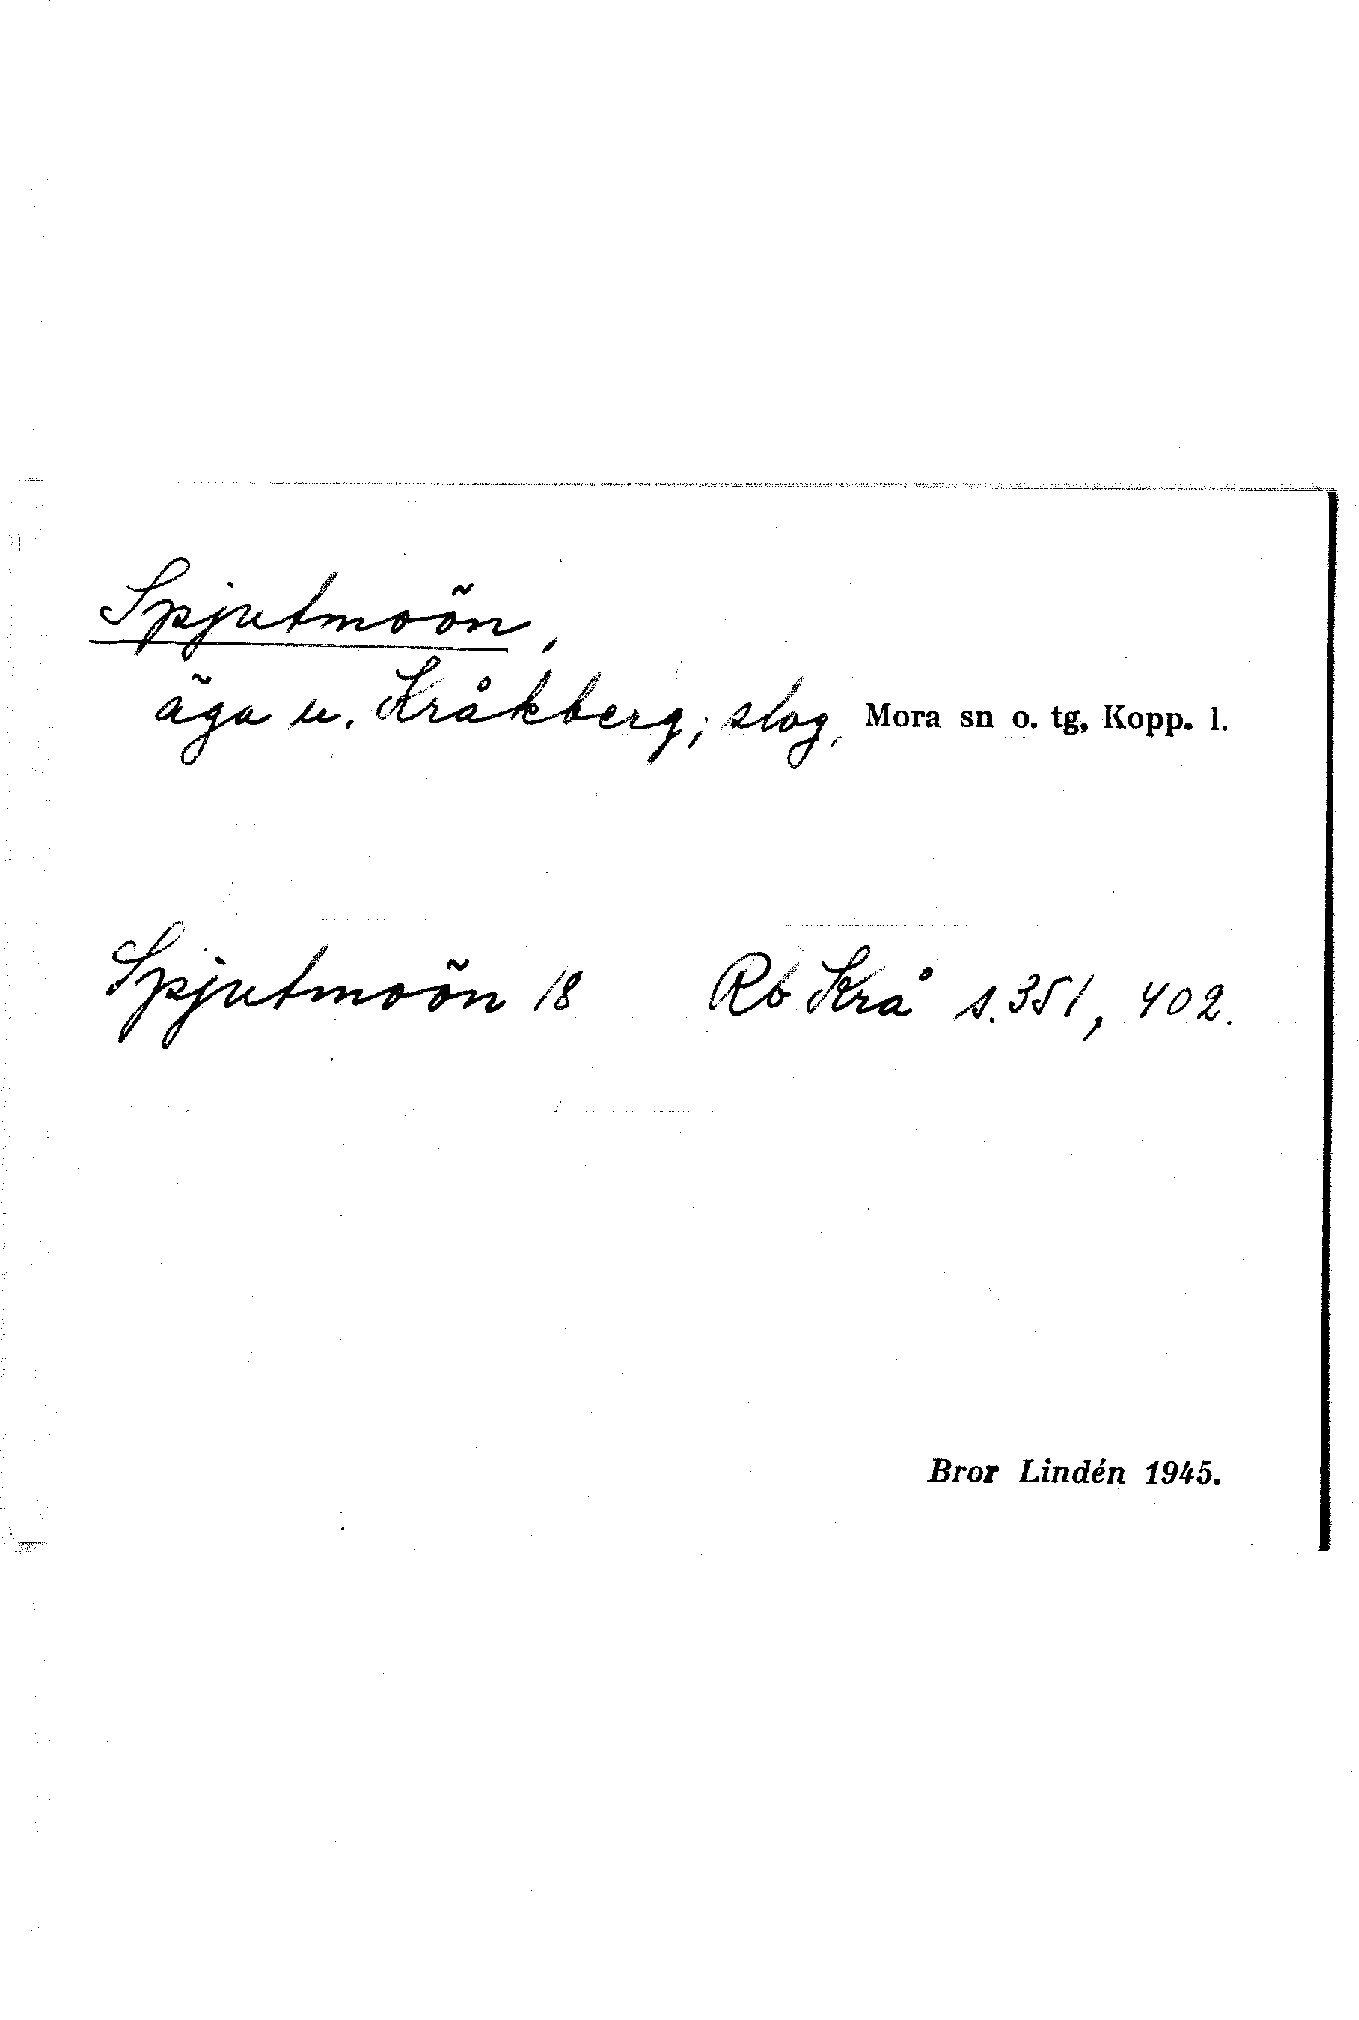 Spjutmoön,
äga u. Kråkberg; slog, Mora sn o. tg, Kopp. l.
Spjutmoön 18 Rb Krå s. 351, 402.
Bror Lindén 1945.